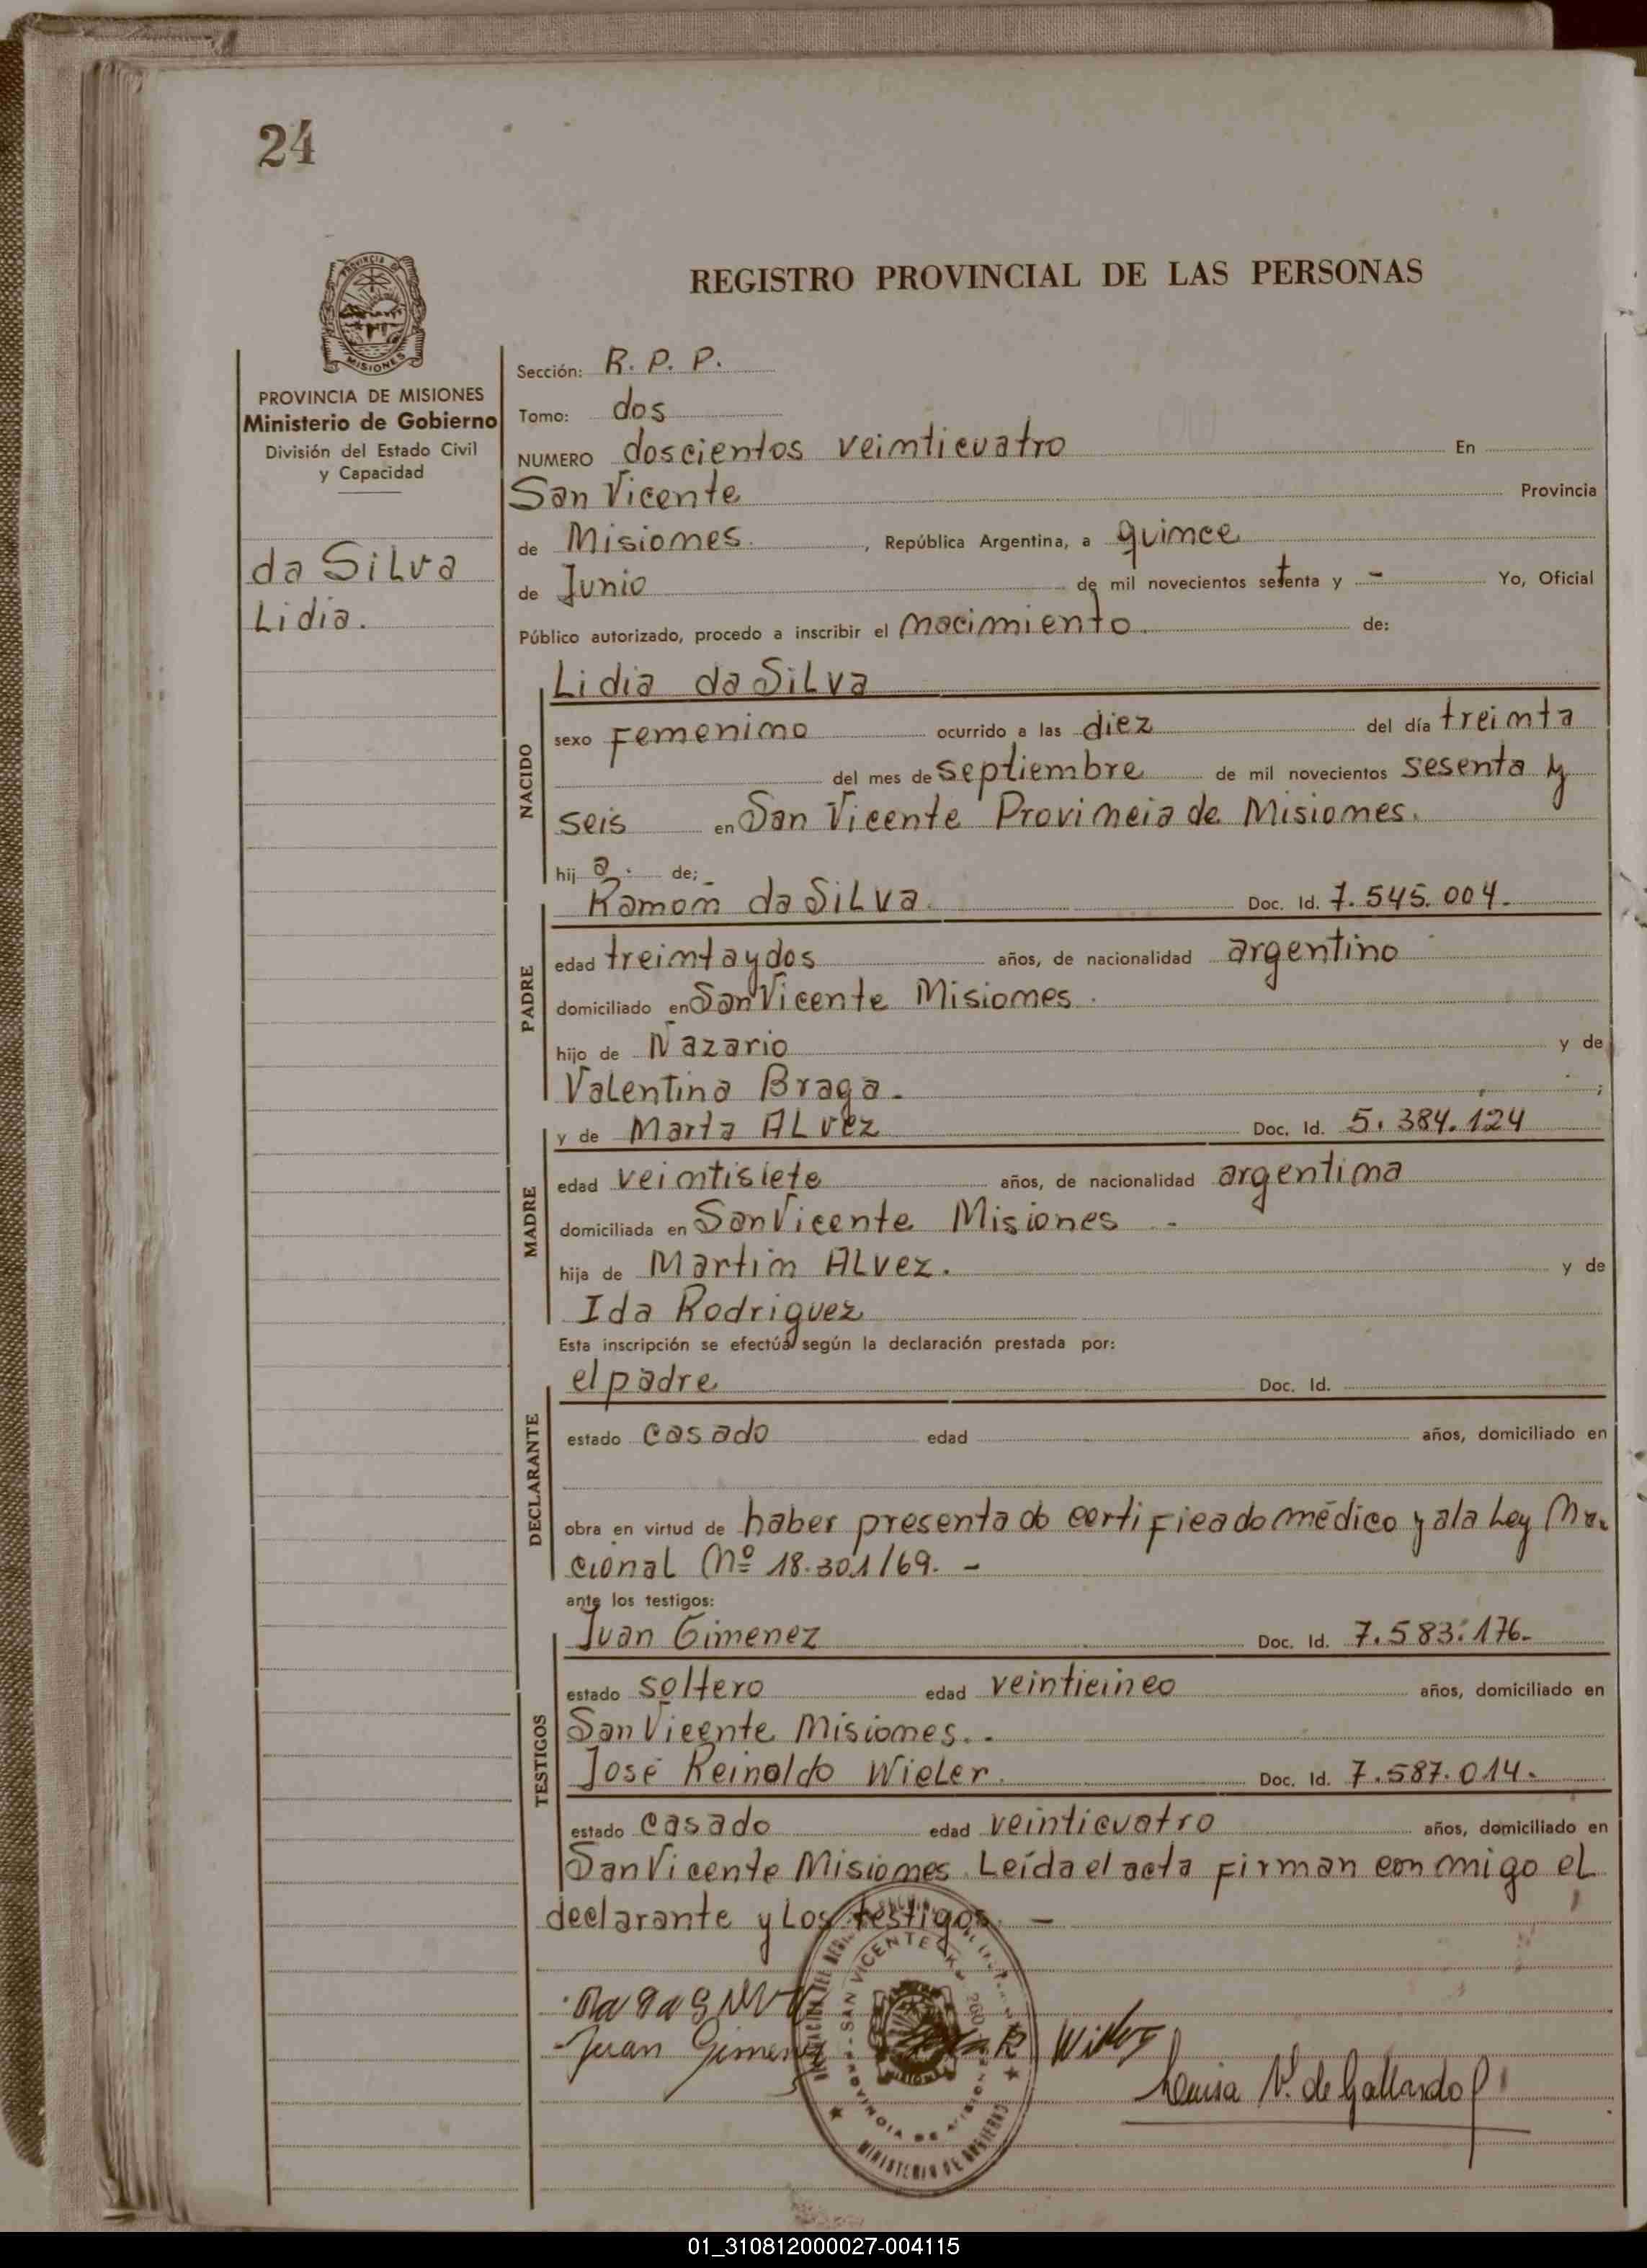 24
REGISTRO PROVINCIAL DE LAS PERSONAS
PROVINCIA DE MISIONES
Ministerio de Gobierno
División del Estado Civil
y Capacidad
da Silva
Lidia.
Sección: R. P. P.
Tomo: dos
NUMERO doscientos veinticuatro En
San Vicente Provincia
de Misiones. , República Argentina, a quince
de Junio de mil novecientos setenta y - Yo, Oficial
Público autorizado, procedo a inscribir el nacimiento. de:
Lidia da Silva
NACIDO
sexo femenino ocurrido a las diez del día treinta
del mes de septiembre de mil novecientos sesenta y
seis en San Vicente Provincia de Misiones.
hij a. de;
Ramón da Silva. Doc. Id. 7.545.004.
PADRE
edad treinta y dos años, de nacionalidad argentino
domiciliado en San Vicente Misiones.
hijo de Nazario y de
Valentina Braga.- ;
y de Marta Alvez Doc. Id. 5.384.124
MADRE
edad veintisiete años, de nacionalidad argentina
domiciliada en San Vicente Misiones -
hija de Martin Alvez. y de
Ida Rodriguez
Esta inscripción se efectúa según la declaración prestada por:
el padre Doc. Id.
DECLARANTE
estado casado edad años, domiciliado en
obra en virtud de haber presentado certificado médico y a la Ley Na-
cional Nº 18.301/69. -
ante los testigos:
Juan Gimenez Doc. Id. 7.583.176-
TESTIGOS
estado soltero edad veinticinco años, domiciliado en
San Vicente Misiones..
José Reinaldo Wieler. Doc. Id. 7.587.014.
estado casado edad veinticuatro años, domiciliado en
San Vicente Misiones. Leída el acta firman conmigo el
declarante y los testigos. -
SAN VICENTE
MINISTERIO DE GOBIERNO
Juan Gimenez
Luisa V. de Gallardo
01_310812000027-004115